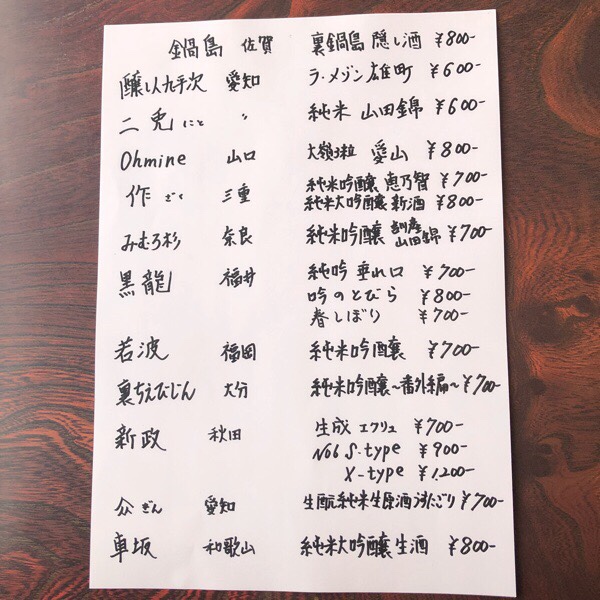 鍋島 佐賀 裏鍋島 隠し酒 ¥800-
醸し人九平次 愛知 ラ・メゾン 雄町 ¥600-
二兎 にと 〃 純米 山田錦 ¥600-
Ohmine 山口 大嶺3粒 愛山 ¥800-
作 ざく 三重 純米吟醸 恵乃智 ¥700-
純米大吟醸 新酒 ¥800-
みむろ杉 奈良 純米吟醸 山田錦 ¥700-
黒龍 福井 純吟 垂れ口 ¥700-
吟のとびら ¥800-
春しぼり ¥700-
若波 福岡 純米吟醸 ¥700-
裏ちえびじん 大分 純米吟醸~番外編~ ¥700-
新政 秋田 生成 エクリュ ¥700-
No6 S-type ¥900-
X-type ¥1,200-
ぎん 愛知 生酛純米生原酒 うすにごり ¥700-
車坂 和歌山 純米大吟醸 生酒 ¥800-